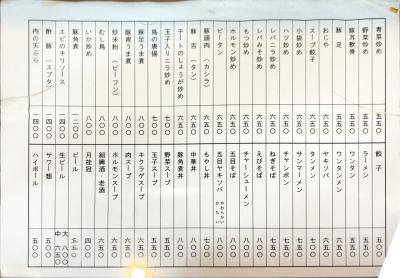 青菜炒め 五五〇
野菜炒め 五五〇
豚耳軟骨 五五〇
豚足 五五〇
おじや
スープ餃子
小袋炒め 六五〇
ハツ炒め 六五〇
レバニラ炒め 六五〇
レバみそ炒め 六五〇
もつ炒め 六五〇
ホルモン炒め 六五〇
ピータン 六五〇
豚頭肉(カシラ) 六五〇
豚舌(タン) 六五〇
チートのしょうが炒め 六五〇
玉子入りニラ炒め 七〇〇
鳥の唐揚 七〇〇
豚足うま煮 八〇〇
豚胃うま煮 八〇〇
炒米粉(ビーフン) 八〇〇
むし鳥 八〇〇
いか炒め 八〇〇
豚角煮 一二〇〇
エビのチリソース 一四〇〇
酢豚(スブタ) 一四〇〇
肉の天ぷら 一四〇〇
餃子 五〇〇
ラーメン 五五〇
ワンタン 五五〇
ワンタンメン 六五〇
ヤキソバ 六五〇
タンメン 六五〇
サンマーメン 六五〇
チャンポン
ねぎそば
えびそば 八〇〇
チャーシューメン 八〇〇
五目そば 八〇〇
五目ヤキソバ やわらかい かたい 八〇〇
もやし丼
中華丼 八〇〇
豚角煮丼 八〇〇
野菜スープ
玉子スープ
キクラゲスープ
肉スープ
ホルモンスープ
紹興酒・老酒
月桂冠
ビール
生ビール 大 八〇〇 中 五五〇
サワー類 五〇〇
ハイボール 五〇〇